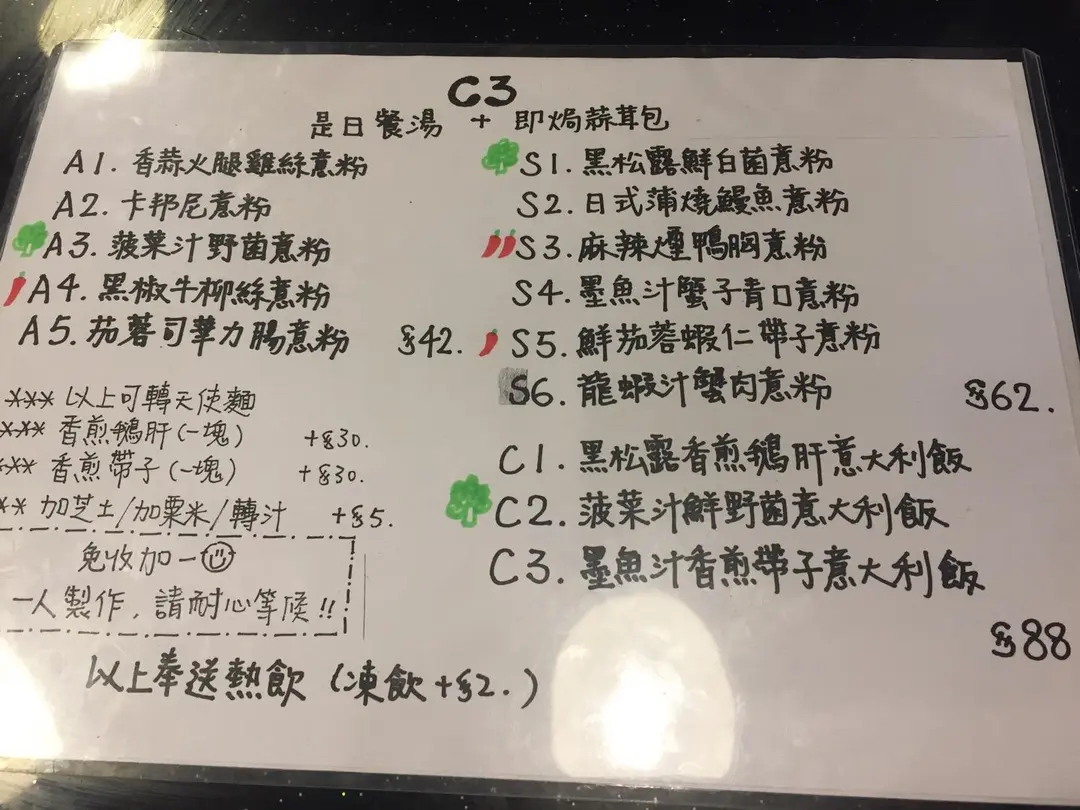 C3
是日餐湯 + 即焗蒜茸包
A1. 香蒜火腿雞絲意粉
A2. 卡邦尼意粉
A3. 菠菜汁野菌意粉
A4. 黑椒牛柳絲意粉
A5. 茄蓉司華力腸意粉 $42.
*** 以上可轉天使麵
*** 香煎鵝肝(一塊) +$30.
** 香煎帶子(一塊) +$30.
** 加芝士/加粟米/轉汁 +$5.
免收加一☺
一人製作，請耐心等候!!
以上奉送熱飲 (凍飲+$2.)
S1. 黑松露鮮白菌意粉
S2. 日式蒲燒鰻魚意粉
S3. 麻辣煙鴨胸意粉
S4. 墨魚汁蟹子青口意粉
S5. 鮮茄蓉蝦仁帶子意粉
S6. 龍蝦汁蟹肉意粉 $62.
C1. 黑松露香煎鵝肝意大利飯
C2. 菠菜汁鮮野菌意大利飯
C3. 墨魚汁香煎帶子意大利飯
$88